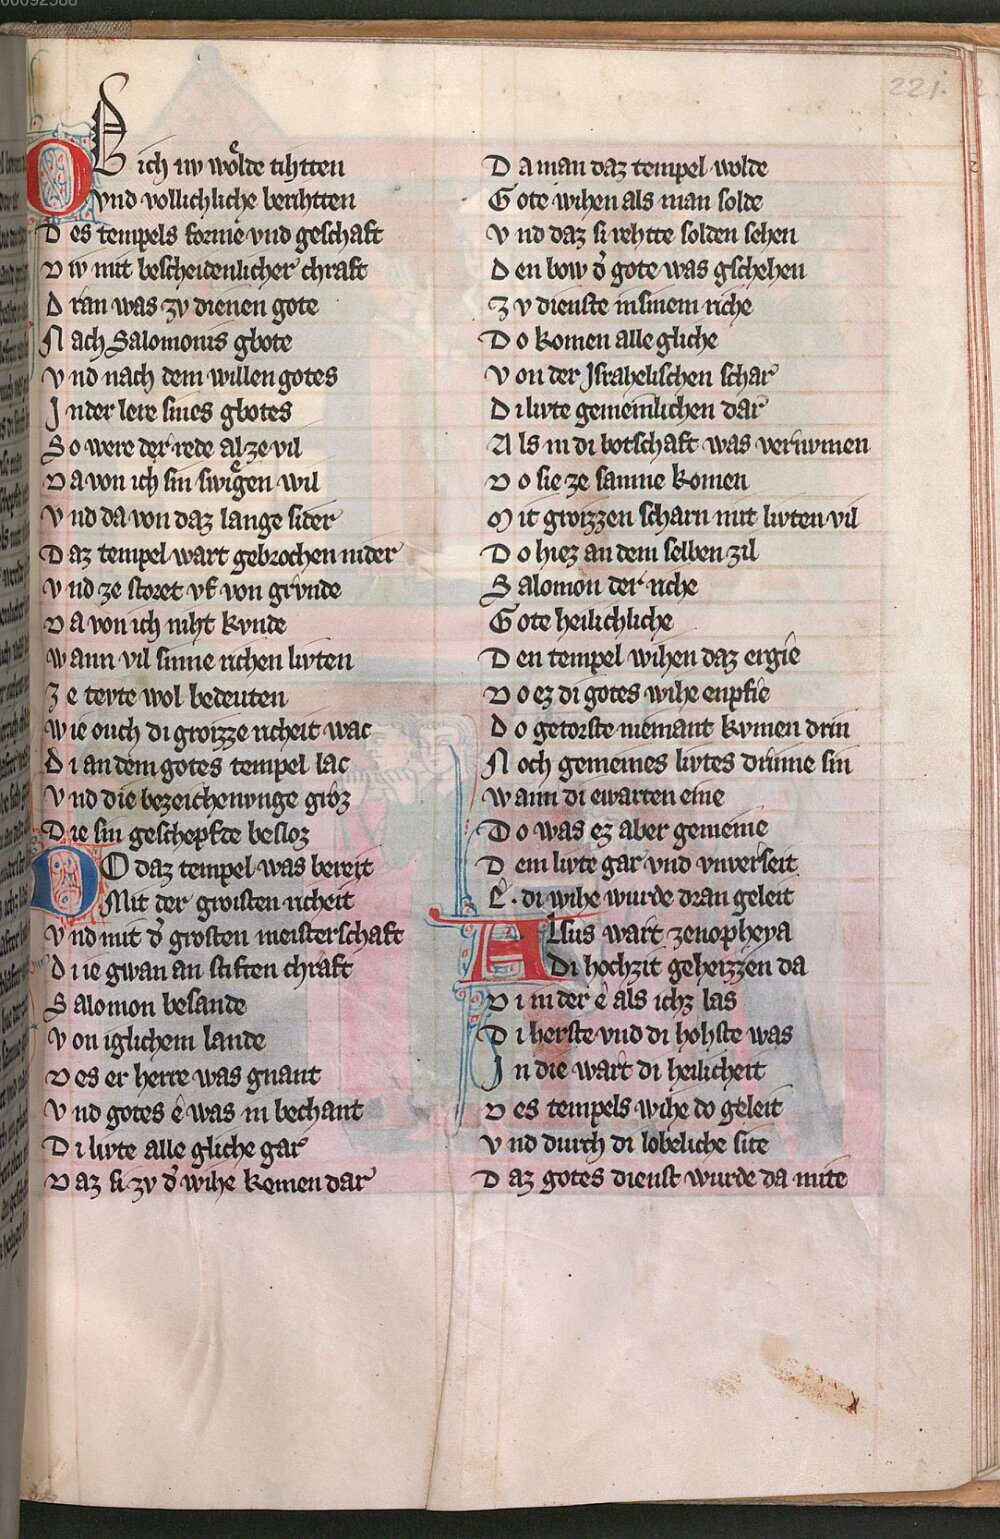 00092588
221.
OB ich nv wolde tihtten
vnd vollichliche berihtten
Des tempels forme vnd geschaft
Div mit bescheidenlicher chraft
Dran was zv dienen gote
Nach Salomonis gbote
Vnd nach dem willen gotes
In der lere sines gbotes
So were der rede al ze vil
Da von ich sin swigen wil
Vnd da von daz lange sider
Daz tempel wart gebrochen nider
Vnd ze storet vf von grvnde
Da von ich niht kvnde
Wann vil sinne richen livten
Ze tevte wol bedeuten
Wie ouch di groizze richeit wac
Di an dem gotes tempel lac
Vnd die bezeichenvnge groz
Die sin geschepfde besloz
DO daz tempel was bereit
Mit der groisten richeit
Vnd mit d̉ grosten meisterschaft
Die gwan an stiften chraft
Salomon besande
Von iglichem lande
Des er herre was gnant
Vnd gotes ê was in bechant
Di livte alle gliche gar
Daz si zv d̉ wihe kemen dar
Da man daz tempel wolde
Gote wihen als man solde
Vnd daz si rehtte solden sehen
Den bow d̉ gote was gschehen
Zv dienste in sinem riche
Do komen alle gliche
Von der Israhelischen schar
Di livte gemeinlichen dar
Als in di botschaft was vernvmen
Do sie ze samne komen
Mit groizzen scharn mit livten vil
Do hiez an dem selben zil
Salomon der riche
Gote heilichliche
Den tempel wihen daz ergie
Do ez di gotes wihe enpfie
Do getorste niemant kvmen drin
Noch gemeines livtes drinne sin
Wann di ewarten eine
Do was ez aber gemeine
Dem livte gar vnd vnverseit
E. di wihe wurde dran geleit
ALsus wart zenopheya
Di hochzit geheizzen da
Di in der ê als ichz las
Di herste vnd di hohste was
In die wart di heilicheit
Des tempels wihe do geleit
Vnd durch di lobeliche site
Daz gotes dienst wurde da mite